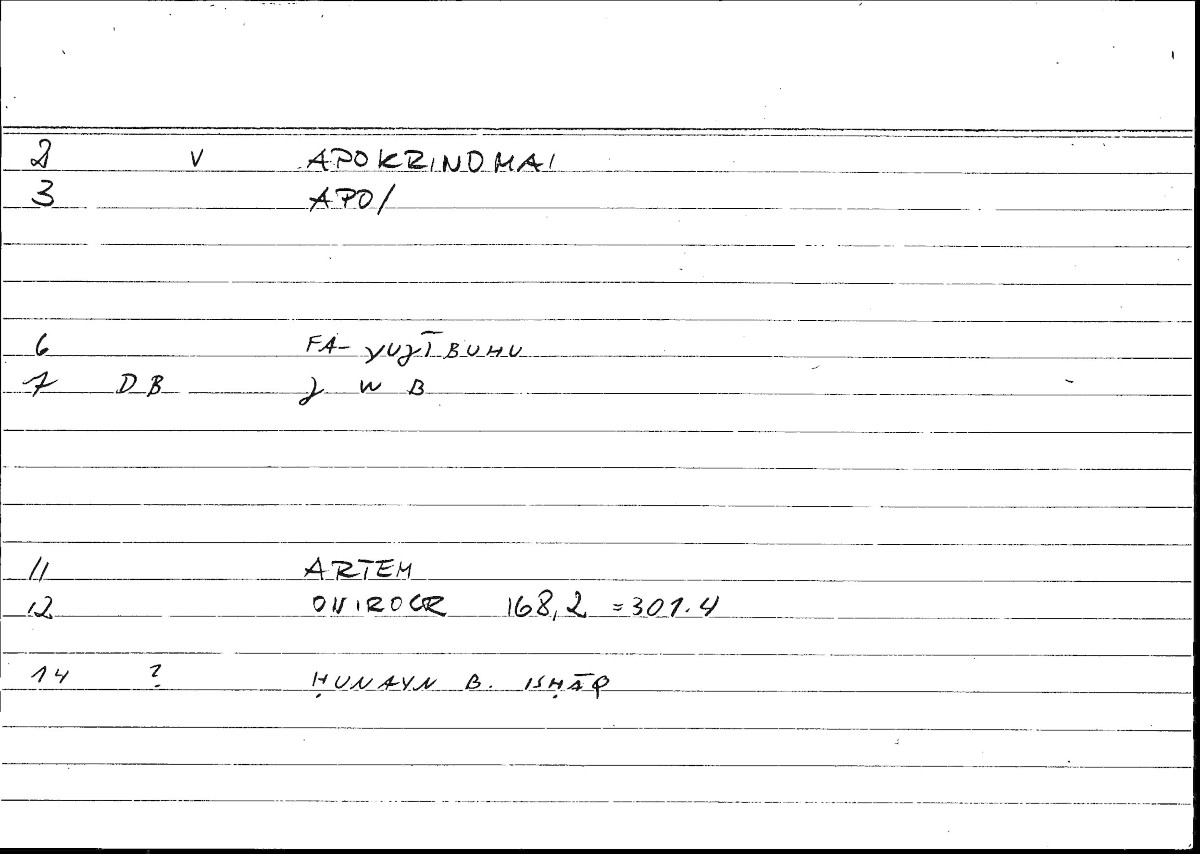 2 V APOKRINOMAI
3 APO/
6 FA- YUJĪBUHU
7 DB J W B
11 ARTEM
12 ONIROCR 168,2 =301.4
14 ? ḤUNAYN B. ISḤĀQ